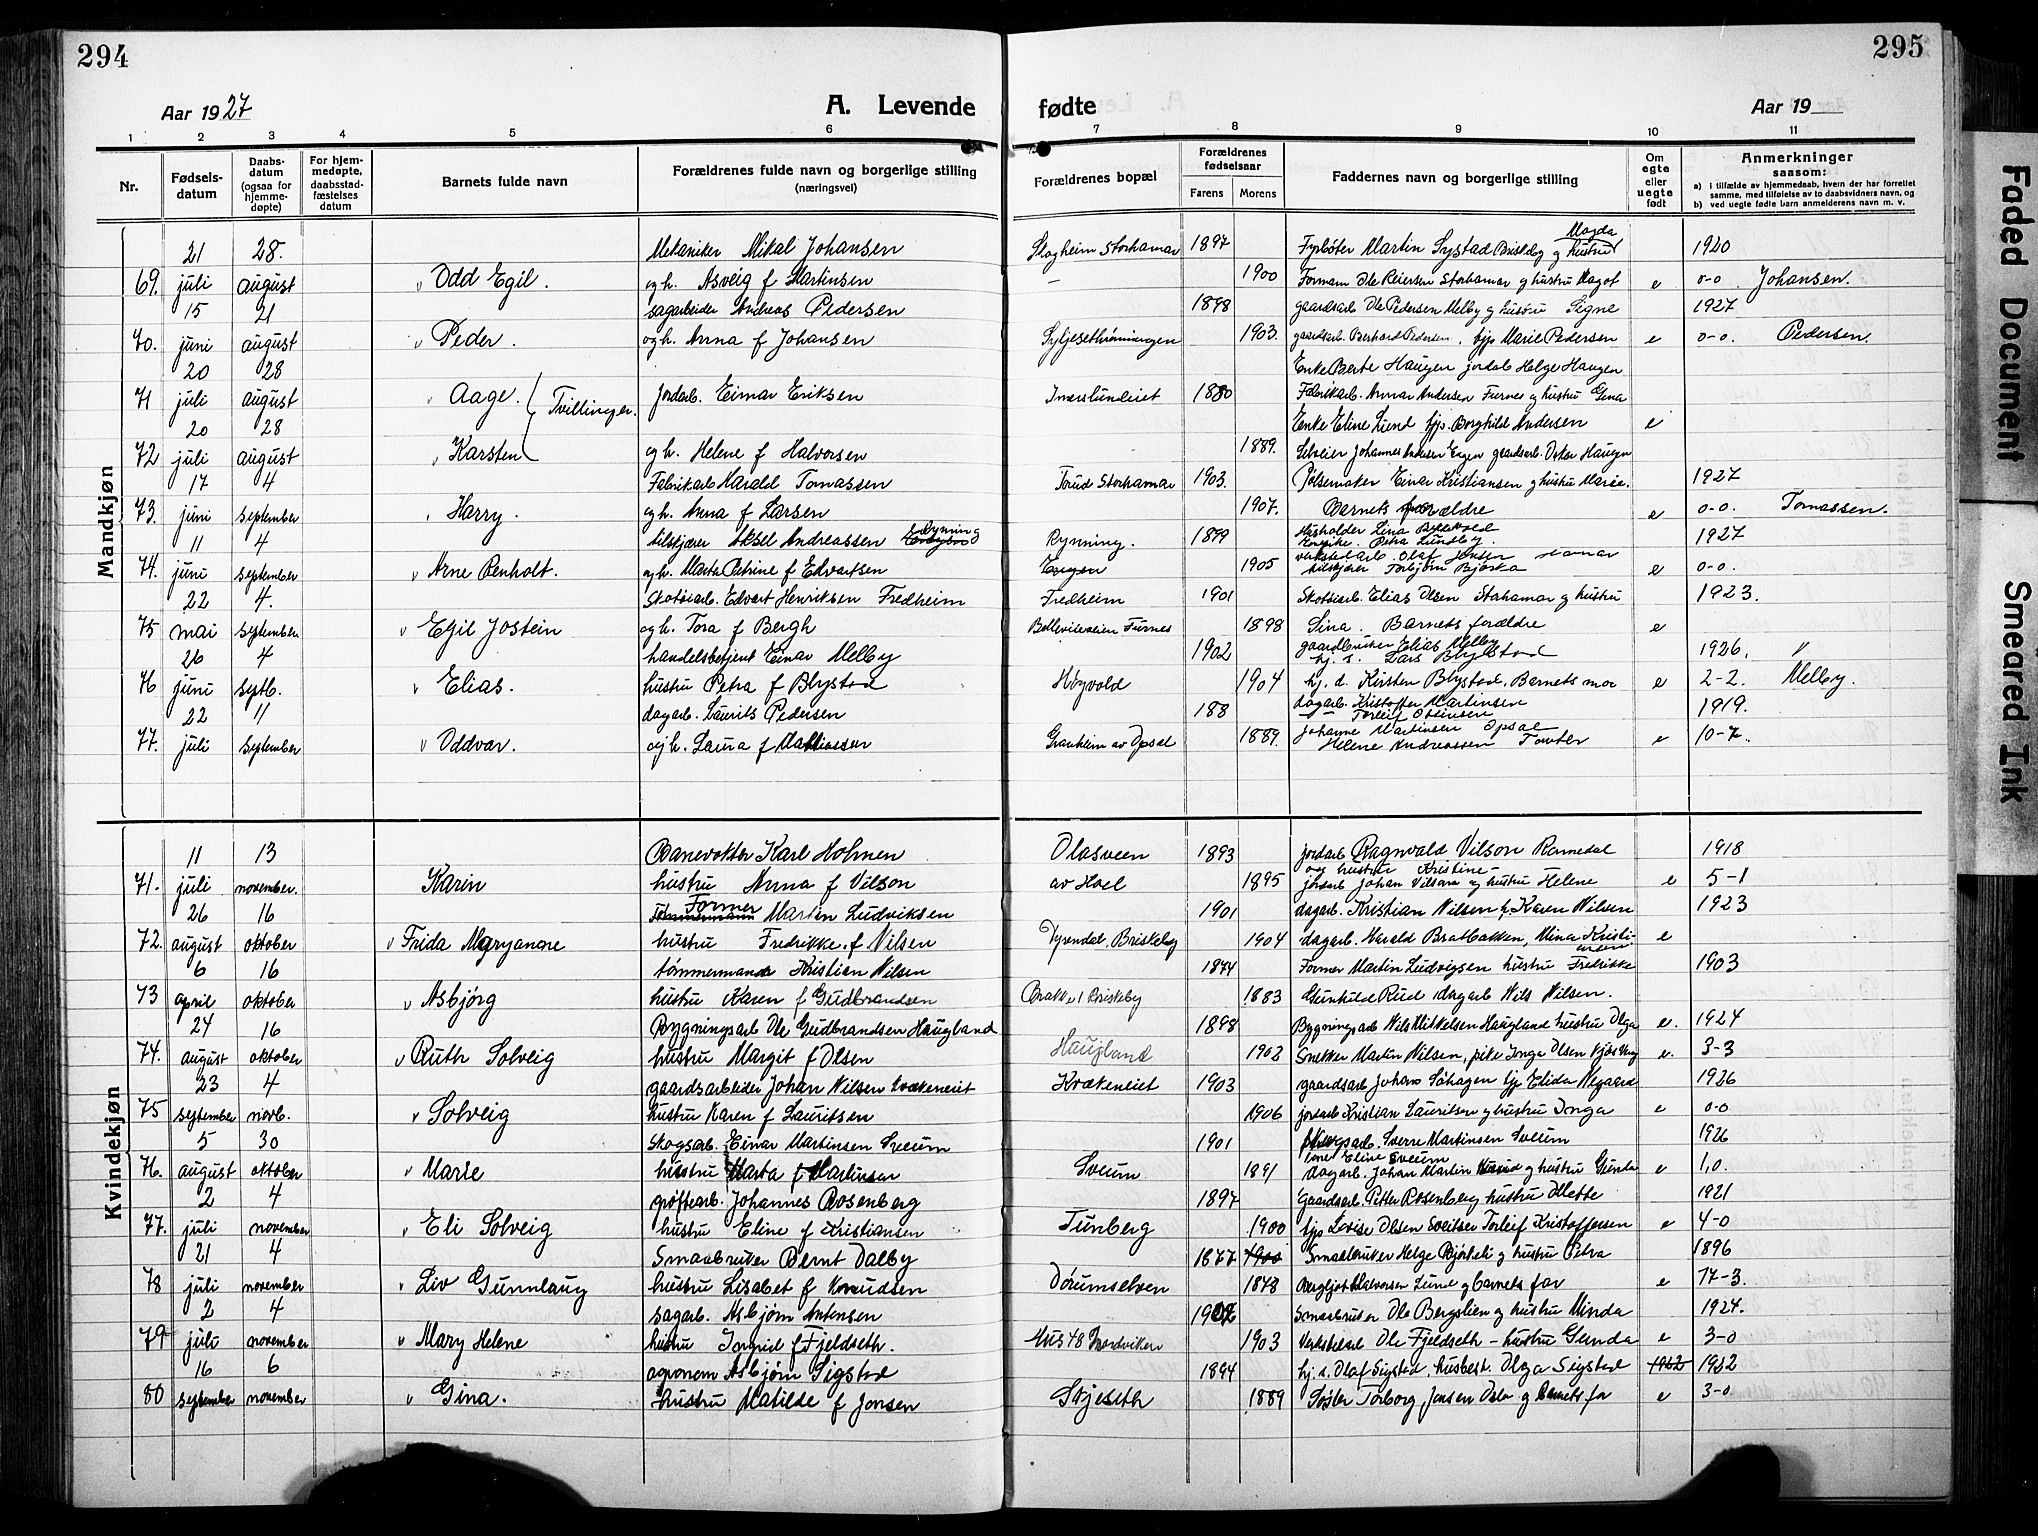 294
Aar 1927
A. Levende
1 2 3 4 5 6
Nr.
Fødsels-
datum
Daabs-
datum
(ogsaa for
hjemme-
døpte)
For hjem-
medøpte,
daabsstad-
fæstelses
datum
Barnets fulde navn
Forældrenes fulde navn og borgerlige stilling
(næringsvei)
Mandkjøn
21 28. Mekaniker Mikal Johansen
69. juli august " Odd Egil. og h. Asveig f Martinsen
15 21 sagarbeider Andreas Pedersen
70. juni august " Peder. og h. Anna f Johansen
20 28
71 juli august " Aage. Tvillinger. Jordarb. Eimar Eriksen
20 28
72 juli august " Karsten og h. Helene f Halvorsen
17 4 Fabrikarb Harald Tomassen
73. juni september " Harry. og h. Anna f Larsen
11 4 Aksel Andreassen Rynning
74. juni september " Arne Renholt. og h. Marta Petrine f Edvartsen
22 4. Skotøiarb. Edvart Henriksen Fredheim
75 mai september " Egil Jostein og h. Tora f Bergh
26 4 handelsbetjent Einar Melby
76 juni septb. " Elias. hustru Petra f Blystad
22 11 dagarb. Laurits Pedersen
77. juli september " Oddvar. og h. Laura f Mathiassen
Kvindekjøn
11 13 Banevokter Karl Holmen
71. juli november. Karin hustru Anna f Vilson
26 16 Former Martin Ludviksen
72. august oktober " Frida Maryanne hustru Fredrikke f Nilsen
6 16 tømmermand Kristian Nilsen
73 april oktober " Asbjørg hustru Karen f Gudbrandsen
24 16 Bygningsarb Ole Gudbrandsen Haugland
74. august oktober " Ruth Solveig hustru Margit f Olsen
23 4 gaardsarbeider Johan Nilsen Krækeneiet
75 september novb. " Solveig hustru Karen f Lauritsen
5 30 Skogsarb. Einar Martinsen Sveum
76. august oktober " Marie hustru Marta f Martinsen
2 4 grøftearb. Johannes Rosenberg
77. juli november " Eli Solveig hustru Eline f Kristiansen
21 4 Smaabruker Bernt Dalby
78 juli november " Liv Gunnlaug hustru Lisabet f Knudsen
2 4 sagarb. Asbjørn Antonsen
79 juli november " Mary Helene hustru Ingrid f Fjeldseth.
16 6 agronom Asbjørn Sigstad
80 september november " Gina. hustru Matilde f Jonsen
295
fødte
Aar 19
7 8 9 10 11
Forældrenes bopæl
Forældrenes
fødselsaar
Farens Morens
Faddernes navn og borgerlige stilling
Om
egte
eller
uegte
født
Anmerkninger
saasom:
a) i tilfælde av hjemmedaab, hvem der har forrettet
samme, med tilføielse av to daabsvidners navn, og
b) ved uegte fødte barn anmelderens navn m. v.
Magda
Skogheim Storhamar 1897 Fyrbøter Martin Systad Briskeby og hustru 1920
— 1900 Formann Ole Reiersen Storhamar og hustru Magot e 0-0 Johansen.
1898 gaardsarb Ole Pedersen Melby og hustru Signe 1927
1903. gaardsarb. Berhard Pedersen, Marie Pedersen e 0-0. Pedersen.
Enke Berte Haugen jordarb Helge Haugen
1880 Fabrikarb. Annar Andersen Furnes og hustru Gina
Enke Eline Lund Borghild Andersen e
1889. Johannes Andersen Engen gaardsarb. Oskar Haugen
Torud Storhamar 1903. Pølsemaker Einar Kristiansen og hustru Marie. 1927
1907. Barnets forældre e 0-0. Tomassen.
Rynning. 1899 Husholder Lina Petra Lundby. 1927
Engen 1905 verkstedarb. Olaf Jensen Hamar Torbjørn e 0-0.
Fredheim 1901 Skotøiarb. Elias Olsen Storhamar og hustru 1923.
Bellevueveien Furnes 1898 Lina. Barnets forældre e
1902 gaardbruker Elias Melby hj. s. Lars Blystad 1926. "
Høyvold 1904 hj. d. Kirsten Blystad. Barnets mor e 2-2. Melby.
188 dagarb. Kristoffer Martinsen 1919.
Granheim av Opsal 1889. Johanne Martinsen Opsal Helene Andreassen Tomter e 10-7.
Olasveen 1893 jordarb Ragnvald Vilson Rennedal 1918
og hustru Kristine
av Hoel 1895 jordarb Johan Vilson og hustru Helene e 5-1
1901 dagarb. Kristian Nilsen Karen Nilsen 1923
Briskeby 1904 dagarb. Harald Bratbakken, Mina Kristi-
ansen e
1874 Former Martin Ludvigsen hustru Fredrikke 1903
Brakke 1 Briskeby 1883 Gunhild Rud dagarb Nils Nilsen.
1898 Bygningsarb Nils Mikkelsen Haugland hustru Olga e. 1924
Haugland 1902 Snekker Martin Nilsen, pike Inga Olsen e. 3-3
Krækeneiet 1903 gaardsarb Johans Søhagen Elida 1926
1906 jordarb Kristian Lauritsen og hustru Inga e 0-0
1901 Skogsarb. Sverre Martinsen Sveum 1926
Eline Sveum
Sveum 1891 dagarb. Johan Martin og hustru Gunda e 1,0.
1897 Gaardsarb. Petter Rosenberg hustru Olette 1921
Tunberg 1900 Lovise Olsen Sveitser Torleif Kristoffersen e 4-0
1877 1900 Smaabruker Helge og hustru Petra 1896
Dørumselven 1878 Halvorsen Lund og barnets far e 17-3.
1907 Smaabruker Ole Bergslien og hustru Minda 1924.
Hus 48 Nordviken 1903 Verkstedarb Ole Fjeldseth - hustru Gunda e 3-0
1894 hj. s. Olaf Sigstad, husbest. Olga Sigstad 1922 1922
Skjeseth 1889 Søster Torborg Jensen Oslo og barnets far e 3-0
Faded Document
Smeared Ink